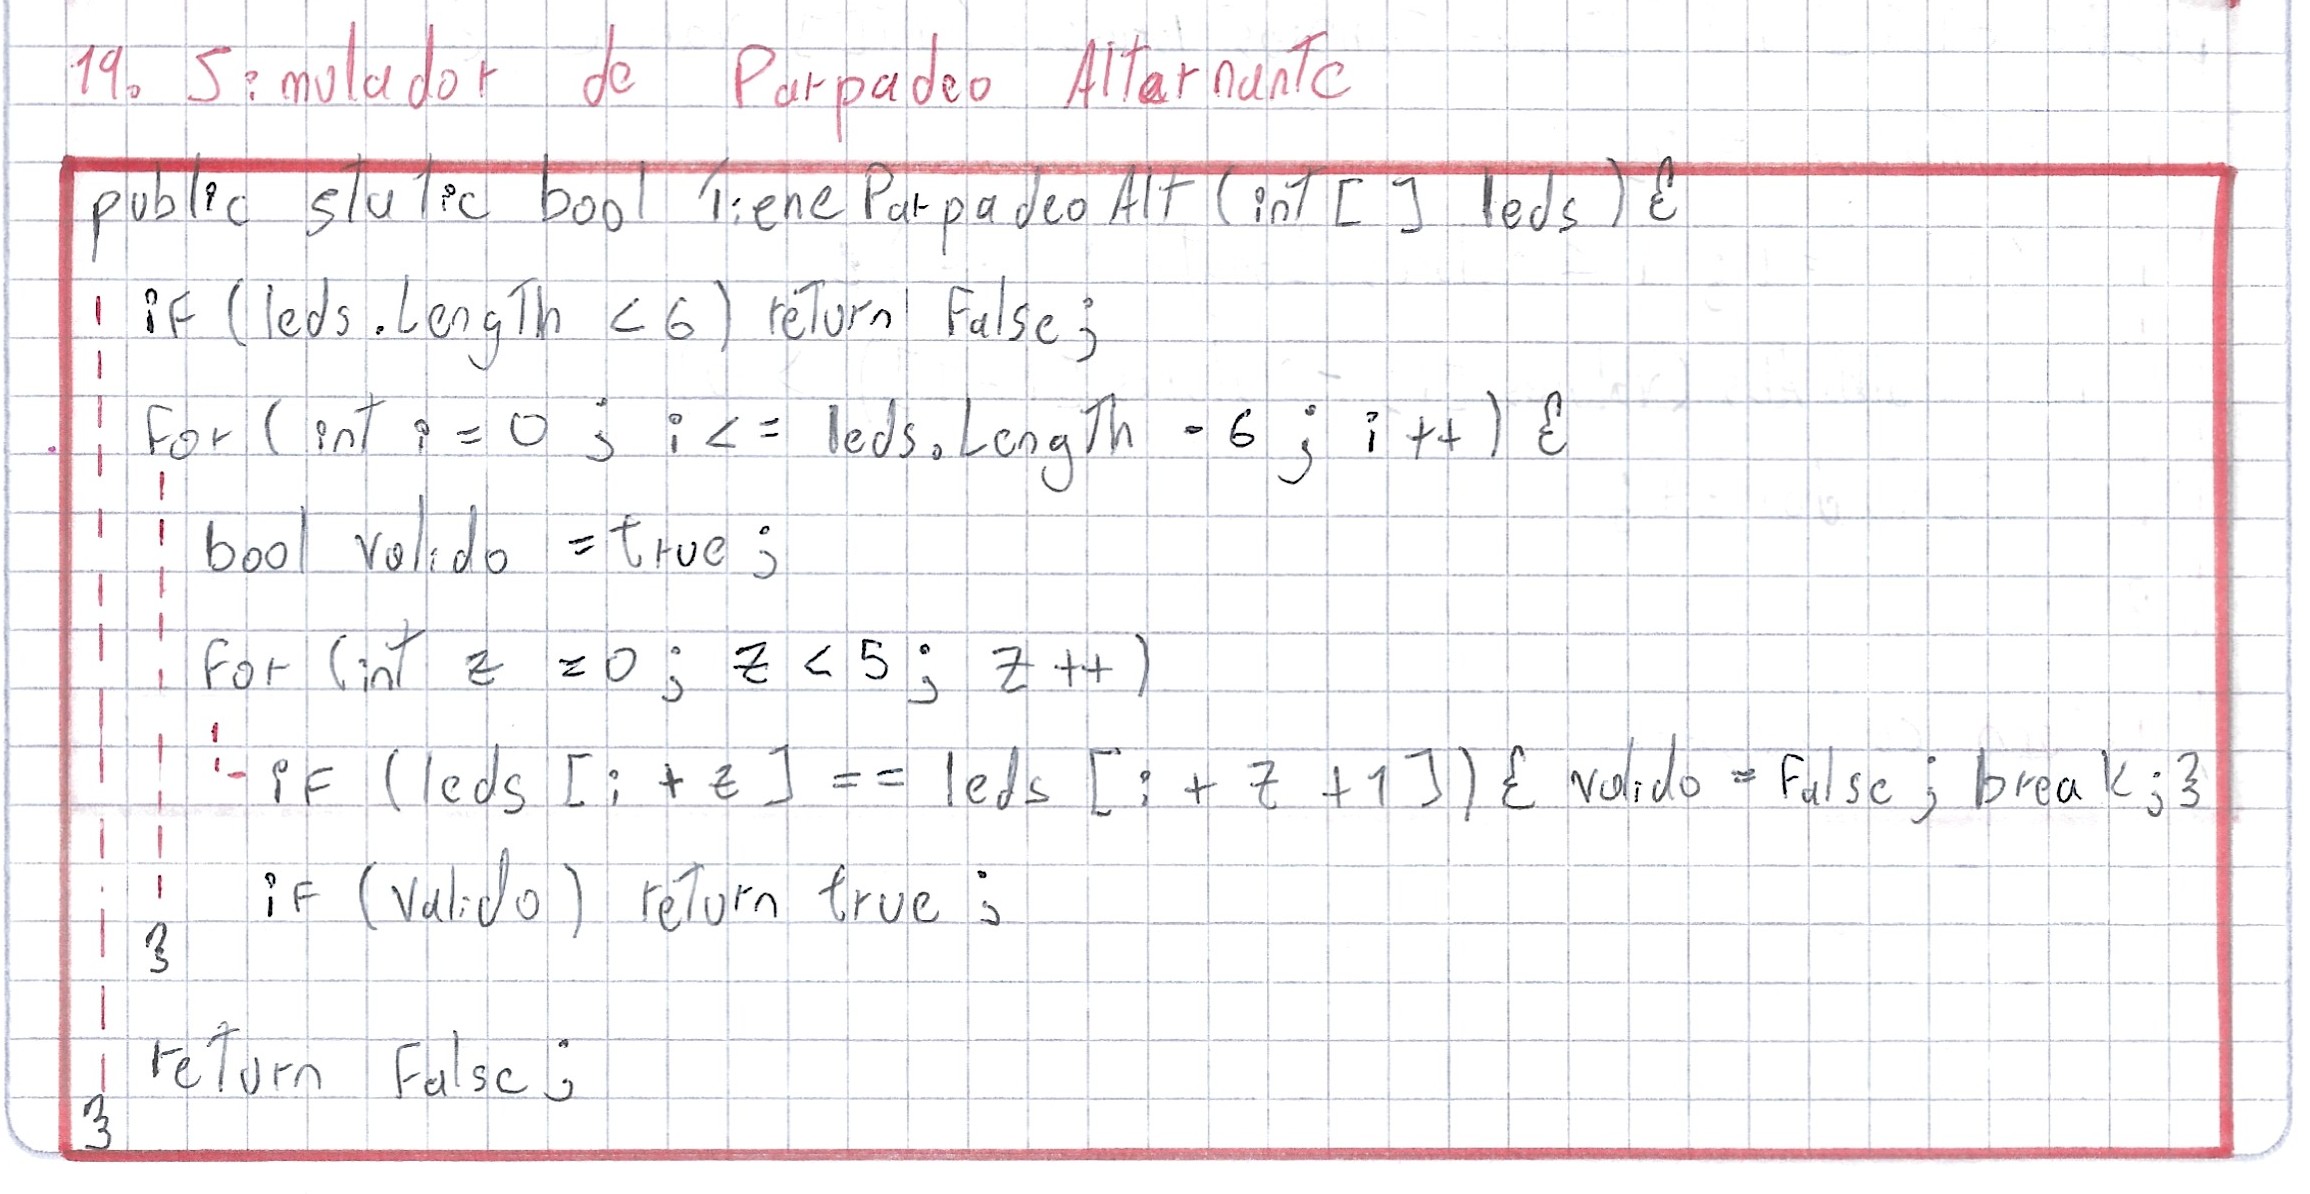 19. Simulador de Parpadeo Alternante
public static bool TieneParpadeoAlt (int [ ] leds) {
if (leds.Length < 6) return False;
for (int i = 0 ; i <= leds.Length - 6 ; i ++) {
bool valido = true ;
for (int z = 0 ; z < 5 ; z ++)
if (leds [i + z] == leds [i + z + 1]) { valido = False ; break ; }
if (valido) return true ;
}
return False ;
}